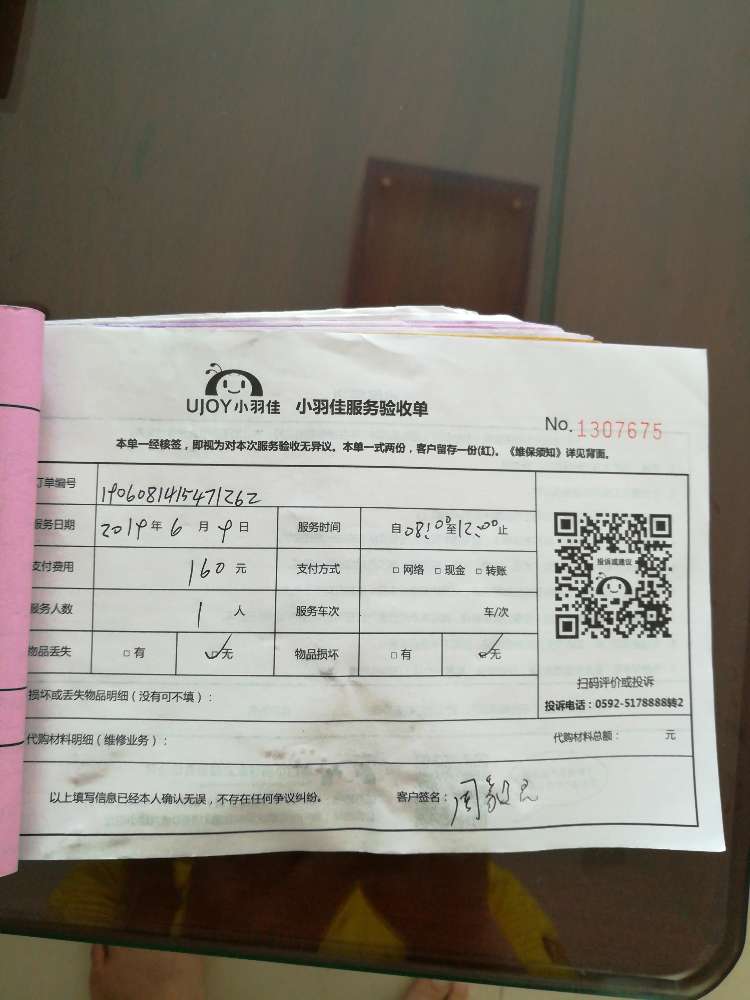 UJOY小羽佳 小羽佳服务验收单
No. 1307675
本单一经核签，即视为对本次服务验收无异议。本单一式两份，客户留存一份(红)。《维保须知》详见背面。
订单编号 1906081415471262
服务日期 2019年6月9日 服务时间 自08:00至12:00止
支付费用 160元 支付方式 □网络 □现金 □转账
服务人数 1人 服务车次 车/次
物品丢失 □有 ☑无 物品损坏 □有 ☑无
投诉或建议
扫码评价或投诉
投诉电话：0592-5178888转2
损坏或丢失物品明细（没有可不填）：
代购材料明细（维修业务）： 代购材料总额： 元
以上填写信息已经本人确认无误，不存在任何争议纠纷。 客户签名：周毅